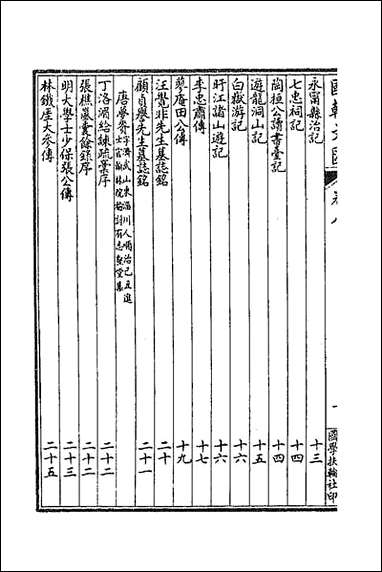 國朝文匯 卷八 一 國學扶輪社印
永甯縣治記 十三
七忠祠記 十四
陶桓公讀書臺記 十四
遊龍洞山記 十五
白嶽游記 十六
盱江諸山遊記 十六
李忠肅傳 十七
蓼庵田公傳 十九
汪覺非先生墓誌銘 二十
顧貞譽先生墓誌銘 二十一
唐夢賚 字濟武山東淄川人順治己丑進士官翰林院檢討有志壑堂集
丁洛湄給諫疏稾序 二十二
張樵嵒囊餘錄序 二十二
明大學士少保張公傳 二十三
林鐵厓大參傳 二十五